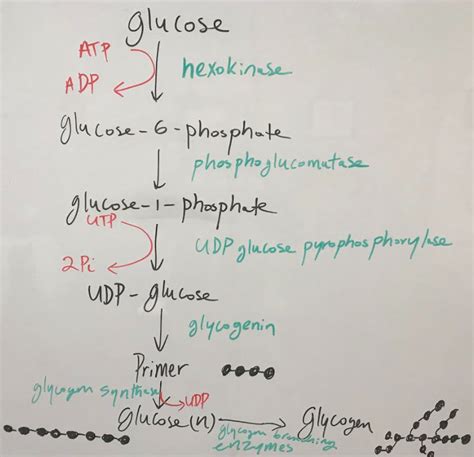 glucose
ATP
ADP
hexokinase
glucose-6-phosphate
phosphoglucomatase
glucose-1-phosphate
UTP
UDP glucose pyrophosphorylase
2Pi
UDP-glucose
glycogenin
Primer
glycogen synthase
UDP
Glucose(n)
Glycogen
glycogen branching
enzymes